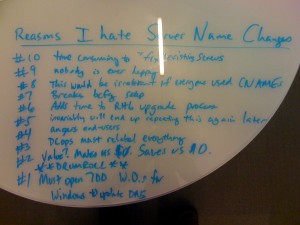 Reasons I hate Server Name Changes
#10 time consuming to servers
#9 nobody is ever happy
#8 This would be irrelevant if everyone used CNAMEs
#7 Breaks
#6 Adds time to upgrade process
#5 inevitably will end up repeating this again later
#4 angers end-users
#3 DCops must relabel everything
#2 Value? Makes us $0. Saves us $0.
**DRUMROLL**
#1 Must open 700 W.O.s for
Windows to update DNS